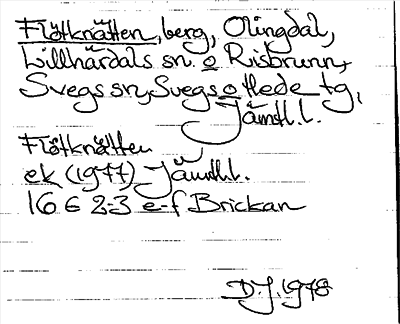 Flötknätten, berg, Olingdal,
Lillhärdals sn. o Risbrunn,
Svegs sn, Svegs o Hede tg,
Jämtl. l.
Flötknätten
ek (1977) Jämtl. l.
16 E 2-3 e-f Brickan
D.J. 1978